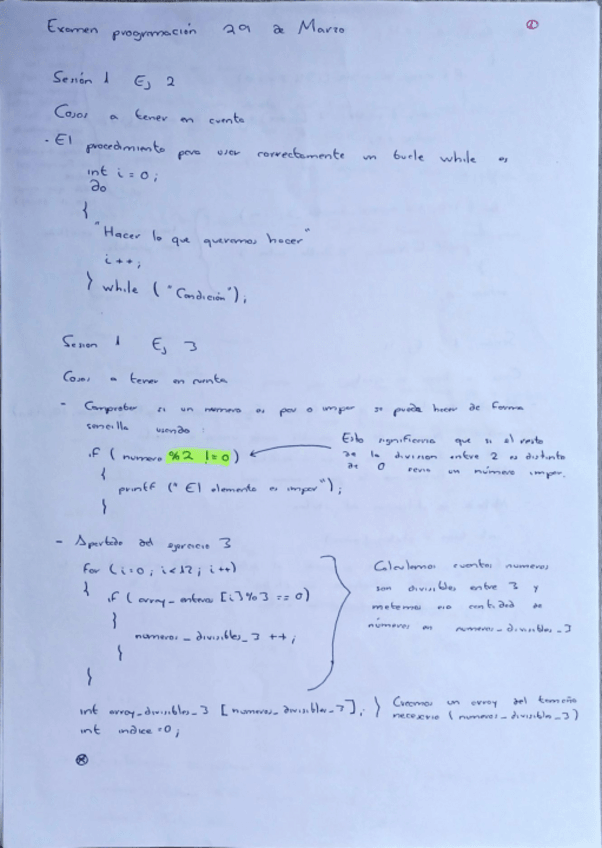 Examen programación 29 de Marzo
①
Sesión 1 Ej 2
Cosas a tener en cuenta
- El procedimiento para usar correctamente un bucle while es
int i = 0;
do
{
"Hacer lo que queramos hacer"
i++;
} while ("Condición");
Sesion 1 Ej 3
Cosas a tener en cuenta
- Comprobar si un numero es par o impar se puede hacer de forma
sencilla usando:
if ( numero %2 != 0 )
{
printf (" El elemento es impar");
}
Esto significaria que si el resto
de la division entre 2 es distinto
de 0 seria un número impar.
- Apartado del ejercicio 3
for (i=0; i<12; i++)
{
if ( array_enteros [i]%3 == 0)
{
numeros_divisibles_3 ++;
}
}
Calculamos cuantos numeros
son divisibles entre 3 y
metemos esa cantidad de
números en numeros_divisibles_3
int array_divisibles_3 [numeros_divisibles_3]; } Creamos un array del tamaño
necesario (numeros_divisible_3)
int indice = 0;
⊗